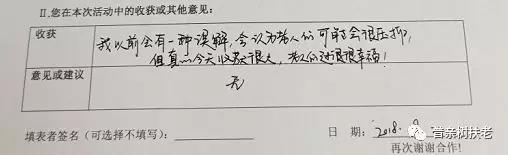 II.您在本次活动中的收获或其他意见:
收获
我以前会有一种误解,会认为老人们可能会很压抑,
但真的今天收获很大,老人们过得很幸福!
意见或建议
无
填表者签名(可选择不填写):
日 期: 2018.9
再次谢谢合作!
首亲树扶老